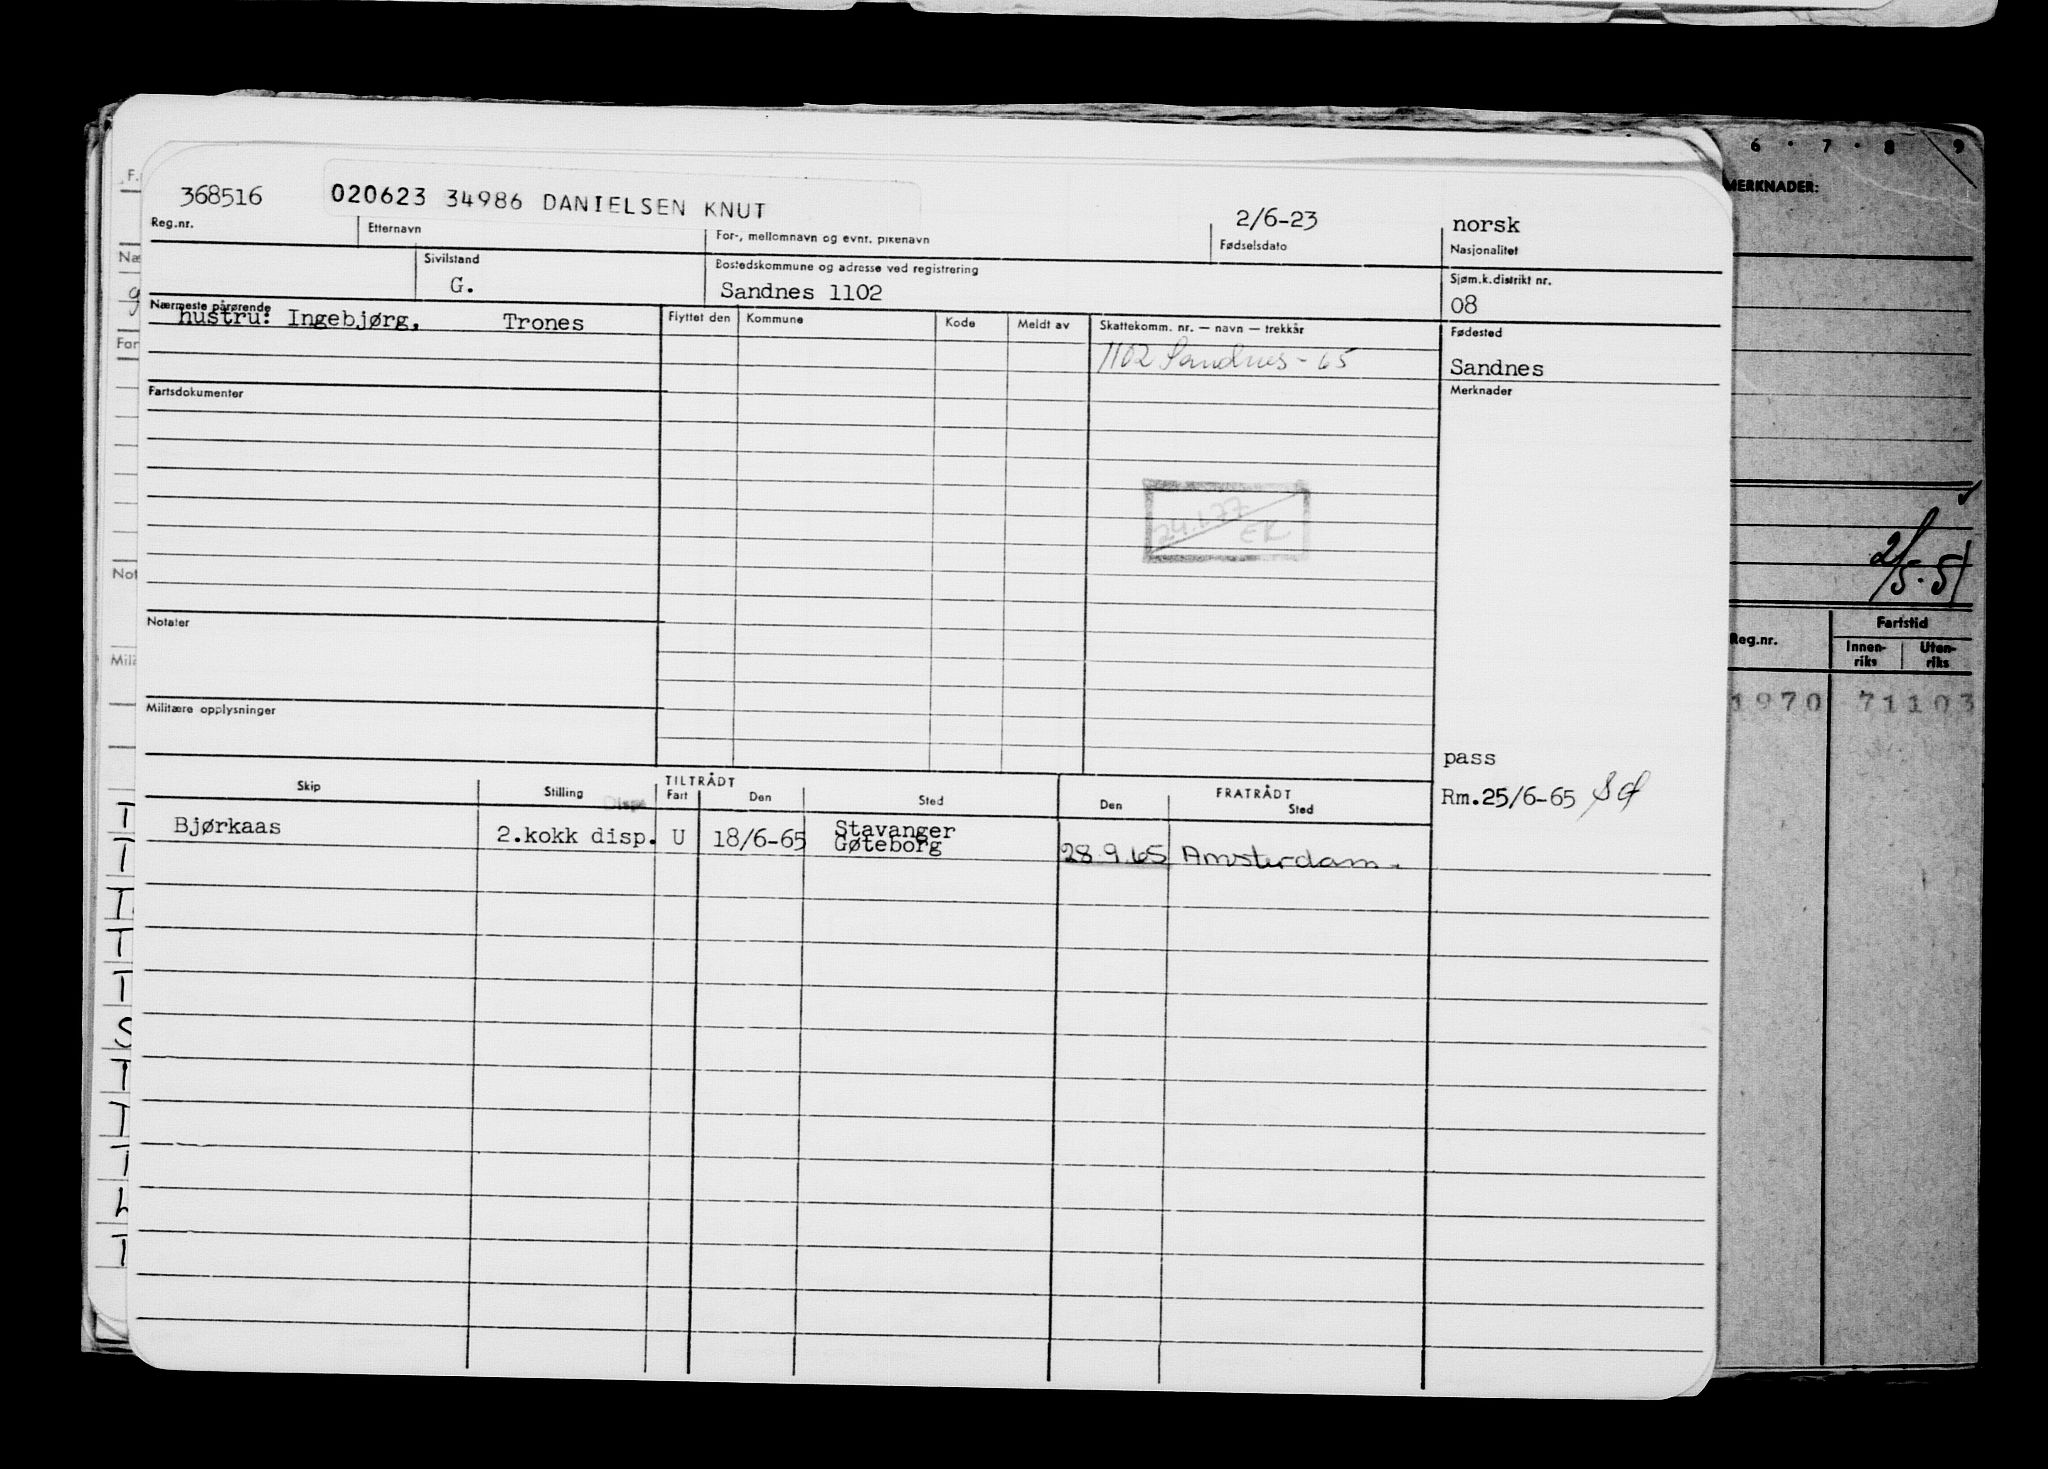 368516 020623 34986 DANIELSEN KNUT 2/6-23 norsk
Reg.nr. Etternavn For-, mellomnavn og evnt. pikenavn Fødselsdato Nasjonalitet
Sivilstand Bostedskommune og adresse ved registrering Sjøm.k.distrikt nr.
G. Sandnes 1102 08
Nærmeste pårørende Flyttet den Kommune Kode Meldt av Skattekomm. nr. — navn — trekkår Fødested
hustru: Ingebjørg, Trones
1102 Sandnes - 65 Sandnes
Fartsdokumenter Merknader
24.1.77
EK
Notater
Militære opplysninger
pass
Rm.25/6-65
Skip Stilling TILTRÅDT FRATRÅDT
Disp. Fart Den Sted Den Sted
Bjørkaas 2.kokk disp. U 18/6-65 Stavanger
Gøteborg 28.9.65 Amsterdam.
6 . 7 . 8 9
MERKNADER:
2/5-51
Reg.nr. Fartstid
Innen-
riks Uten-
riks
1970 71103
F.
Næ
For
Not
Mili
T
T
T
T
T
S
T
T
T
T